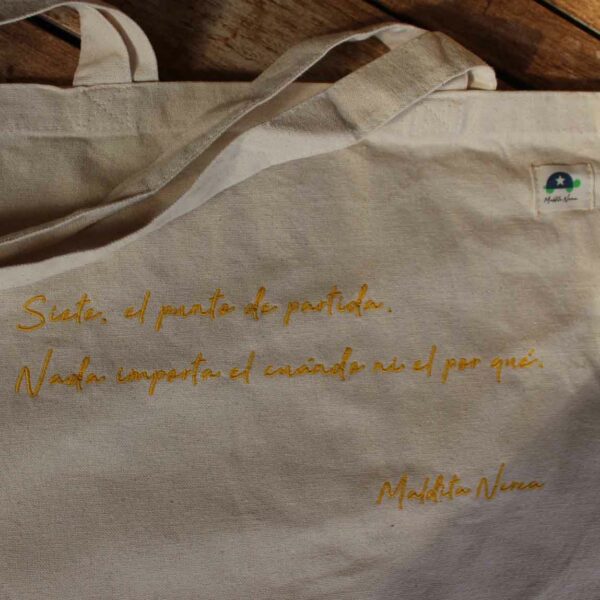 Maldita Nerea
Siete, el punto de partida.
Nada importa el cuándo ni el por qué.
Maldita Nerea